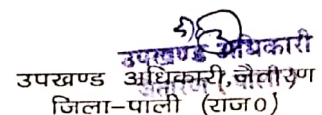 उपखण्ड अधिकारी
उपखण्ड अधिकारी,जैतारण
जिला-पाली (राज0)